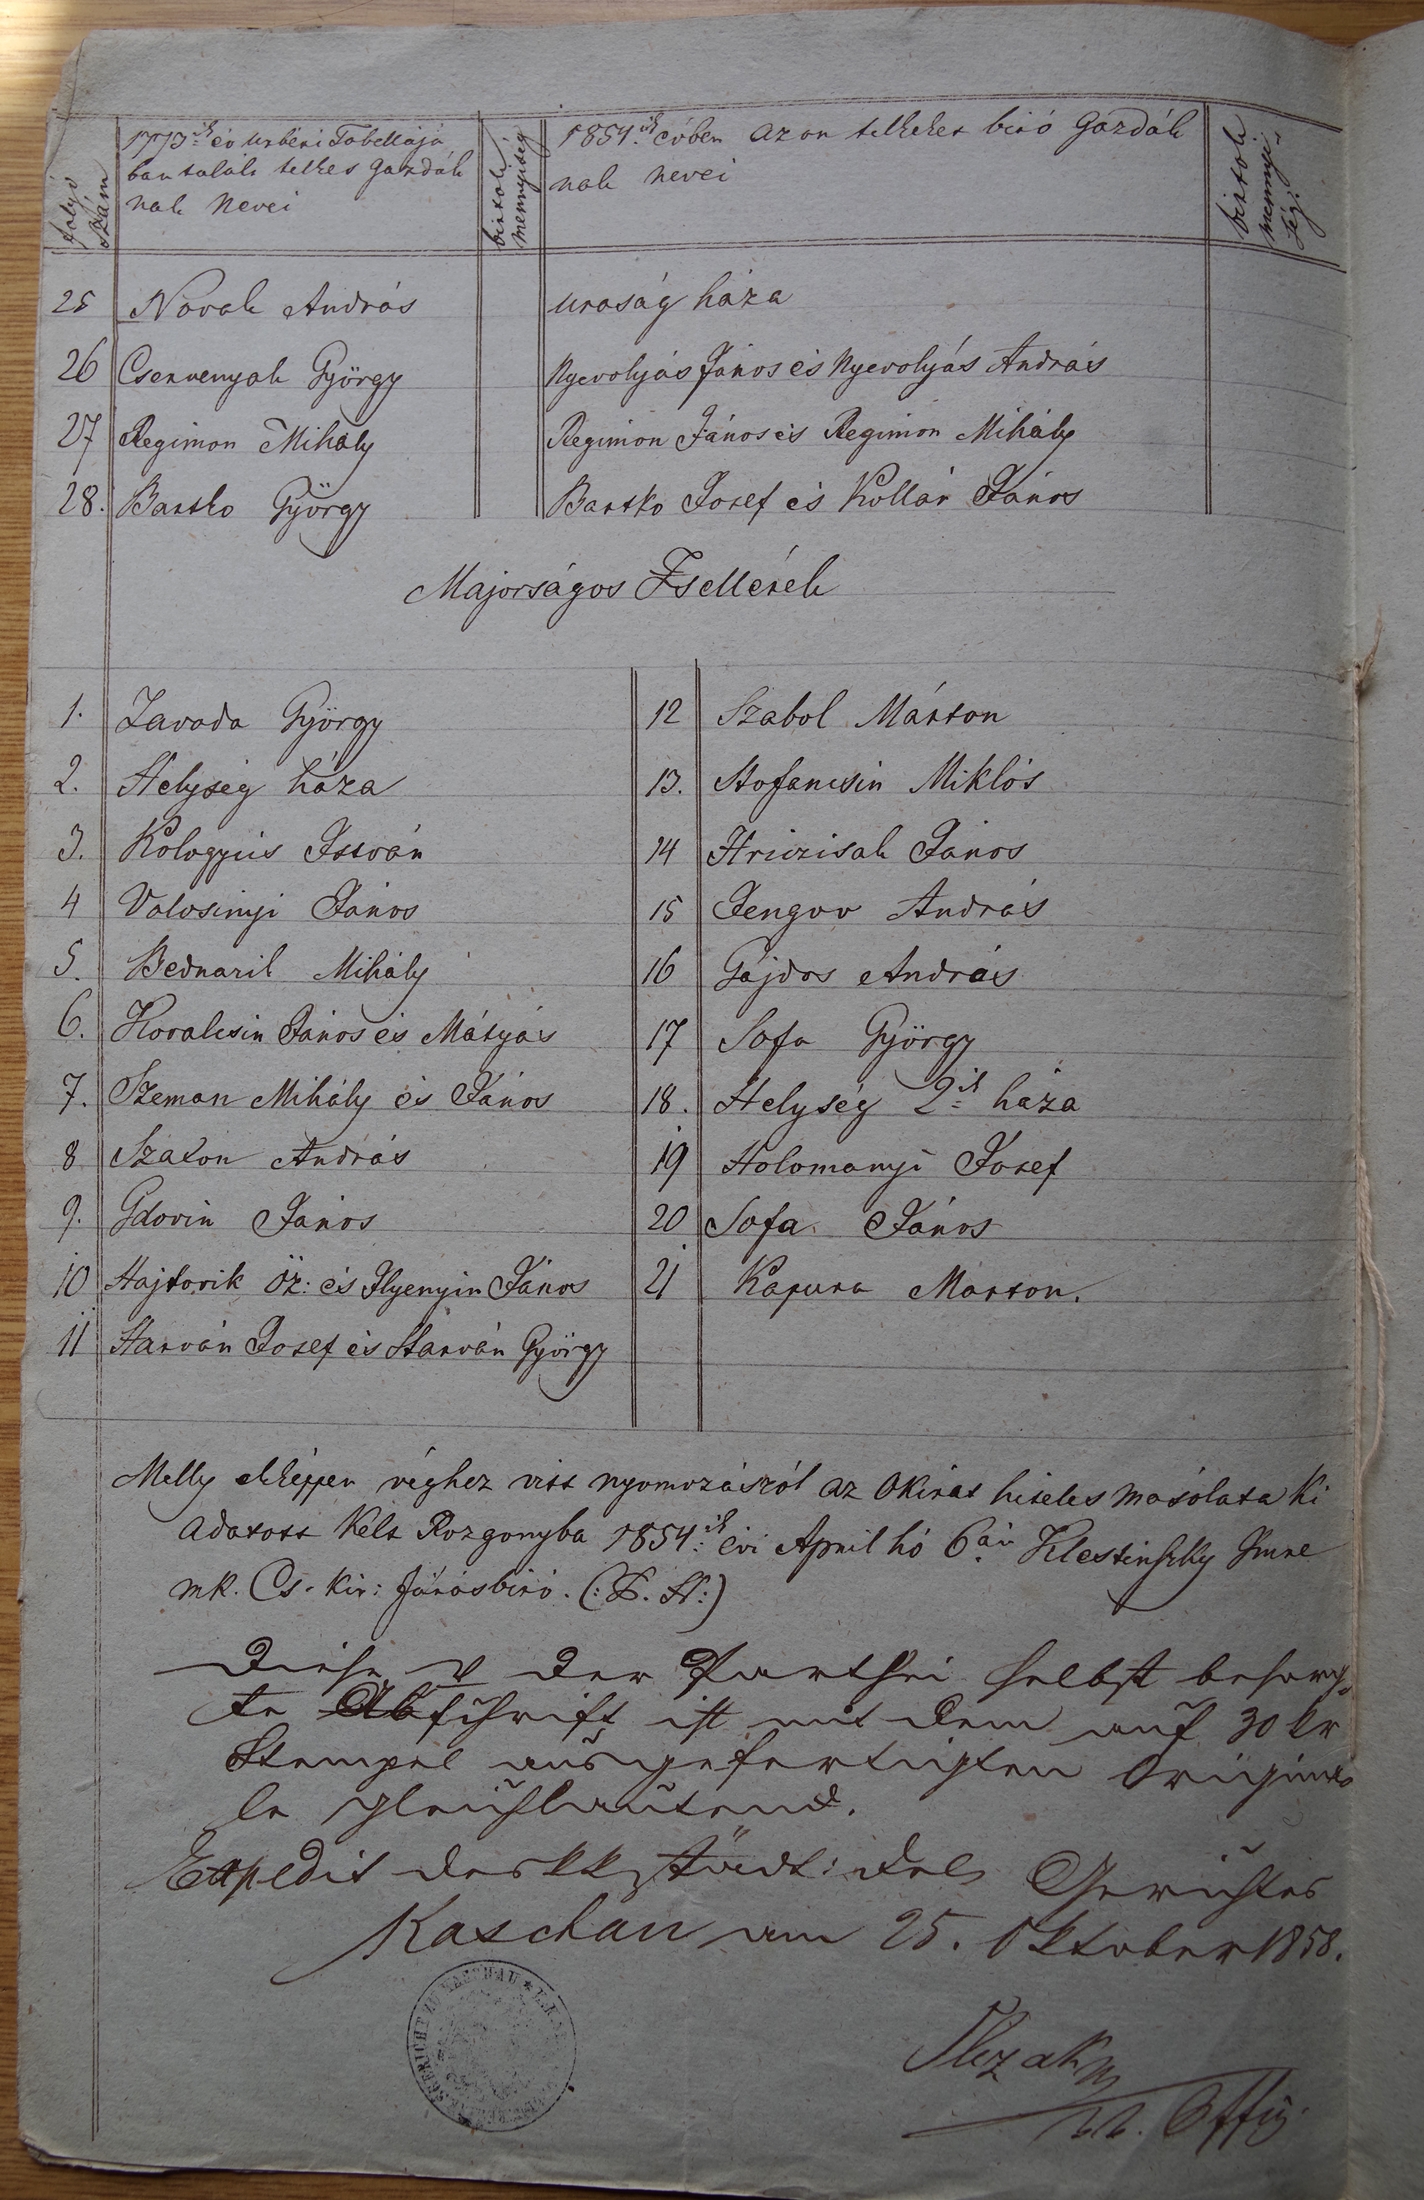 folyó szám
1773ik év Urbéri Tabellájá
ban talált telkes Gazdák
nak Nevei
birtoki mennyiség
1854.ik évben azon telkeket biró Gazdák
nak nevei
birtoki mennyi-
ség.
25 Novak András uraság háza
26 Cservenyak György Nyevolyás János és Nyevolyás András
27 Regimon Mihály Regimon János és Regimon Mihály
28. Bartko György Bartko Josef és Kollár János
Majorságos Zsellérek
1. Zavada György 12 Szabol Márton
2. Helység háza 13. Stofancsin Miklós
3. Kologyiis István 14 Hriczisak János
4 Volosinyi János 15 Fengov András
5. Bednarik Mihály 16 Gajdos András
6. Kovalcsin János és Mátyás 17 Sofa György
7. Szeman Mihály és János 18. Helység 2ik háza
8 Szaton András 19 Holomanyi Josef
9. Gdovin János 20 Sofa János
10 Hajtovik Öz: és Ilyenyin János 21 Kapura Marton.
11 Harván Josef és Harván György
Melly ekképpen véghez vitt nyomozásról az Okirat hiteles másolata ki
adatott Kelt Rozgonyba 1854.ik évi April hó 6án Klestinszky Imre
mk. Cs. kir: Járásbiró. (: P. H:)
Diese v der Parthei selbst besorg-
te Abschrift ist mit dem auf 30 kr
Stempel ausgefertigten Origina-
le gleichlautend.
Expedit des kk städt: del: Gerichtes
Kaschau am 25. Oktober 1858.
Slezak